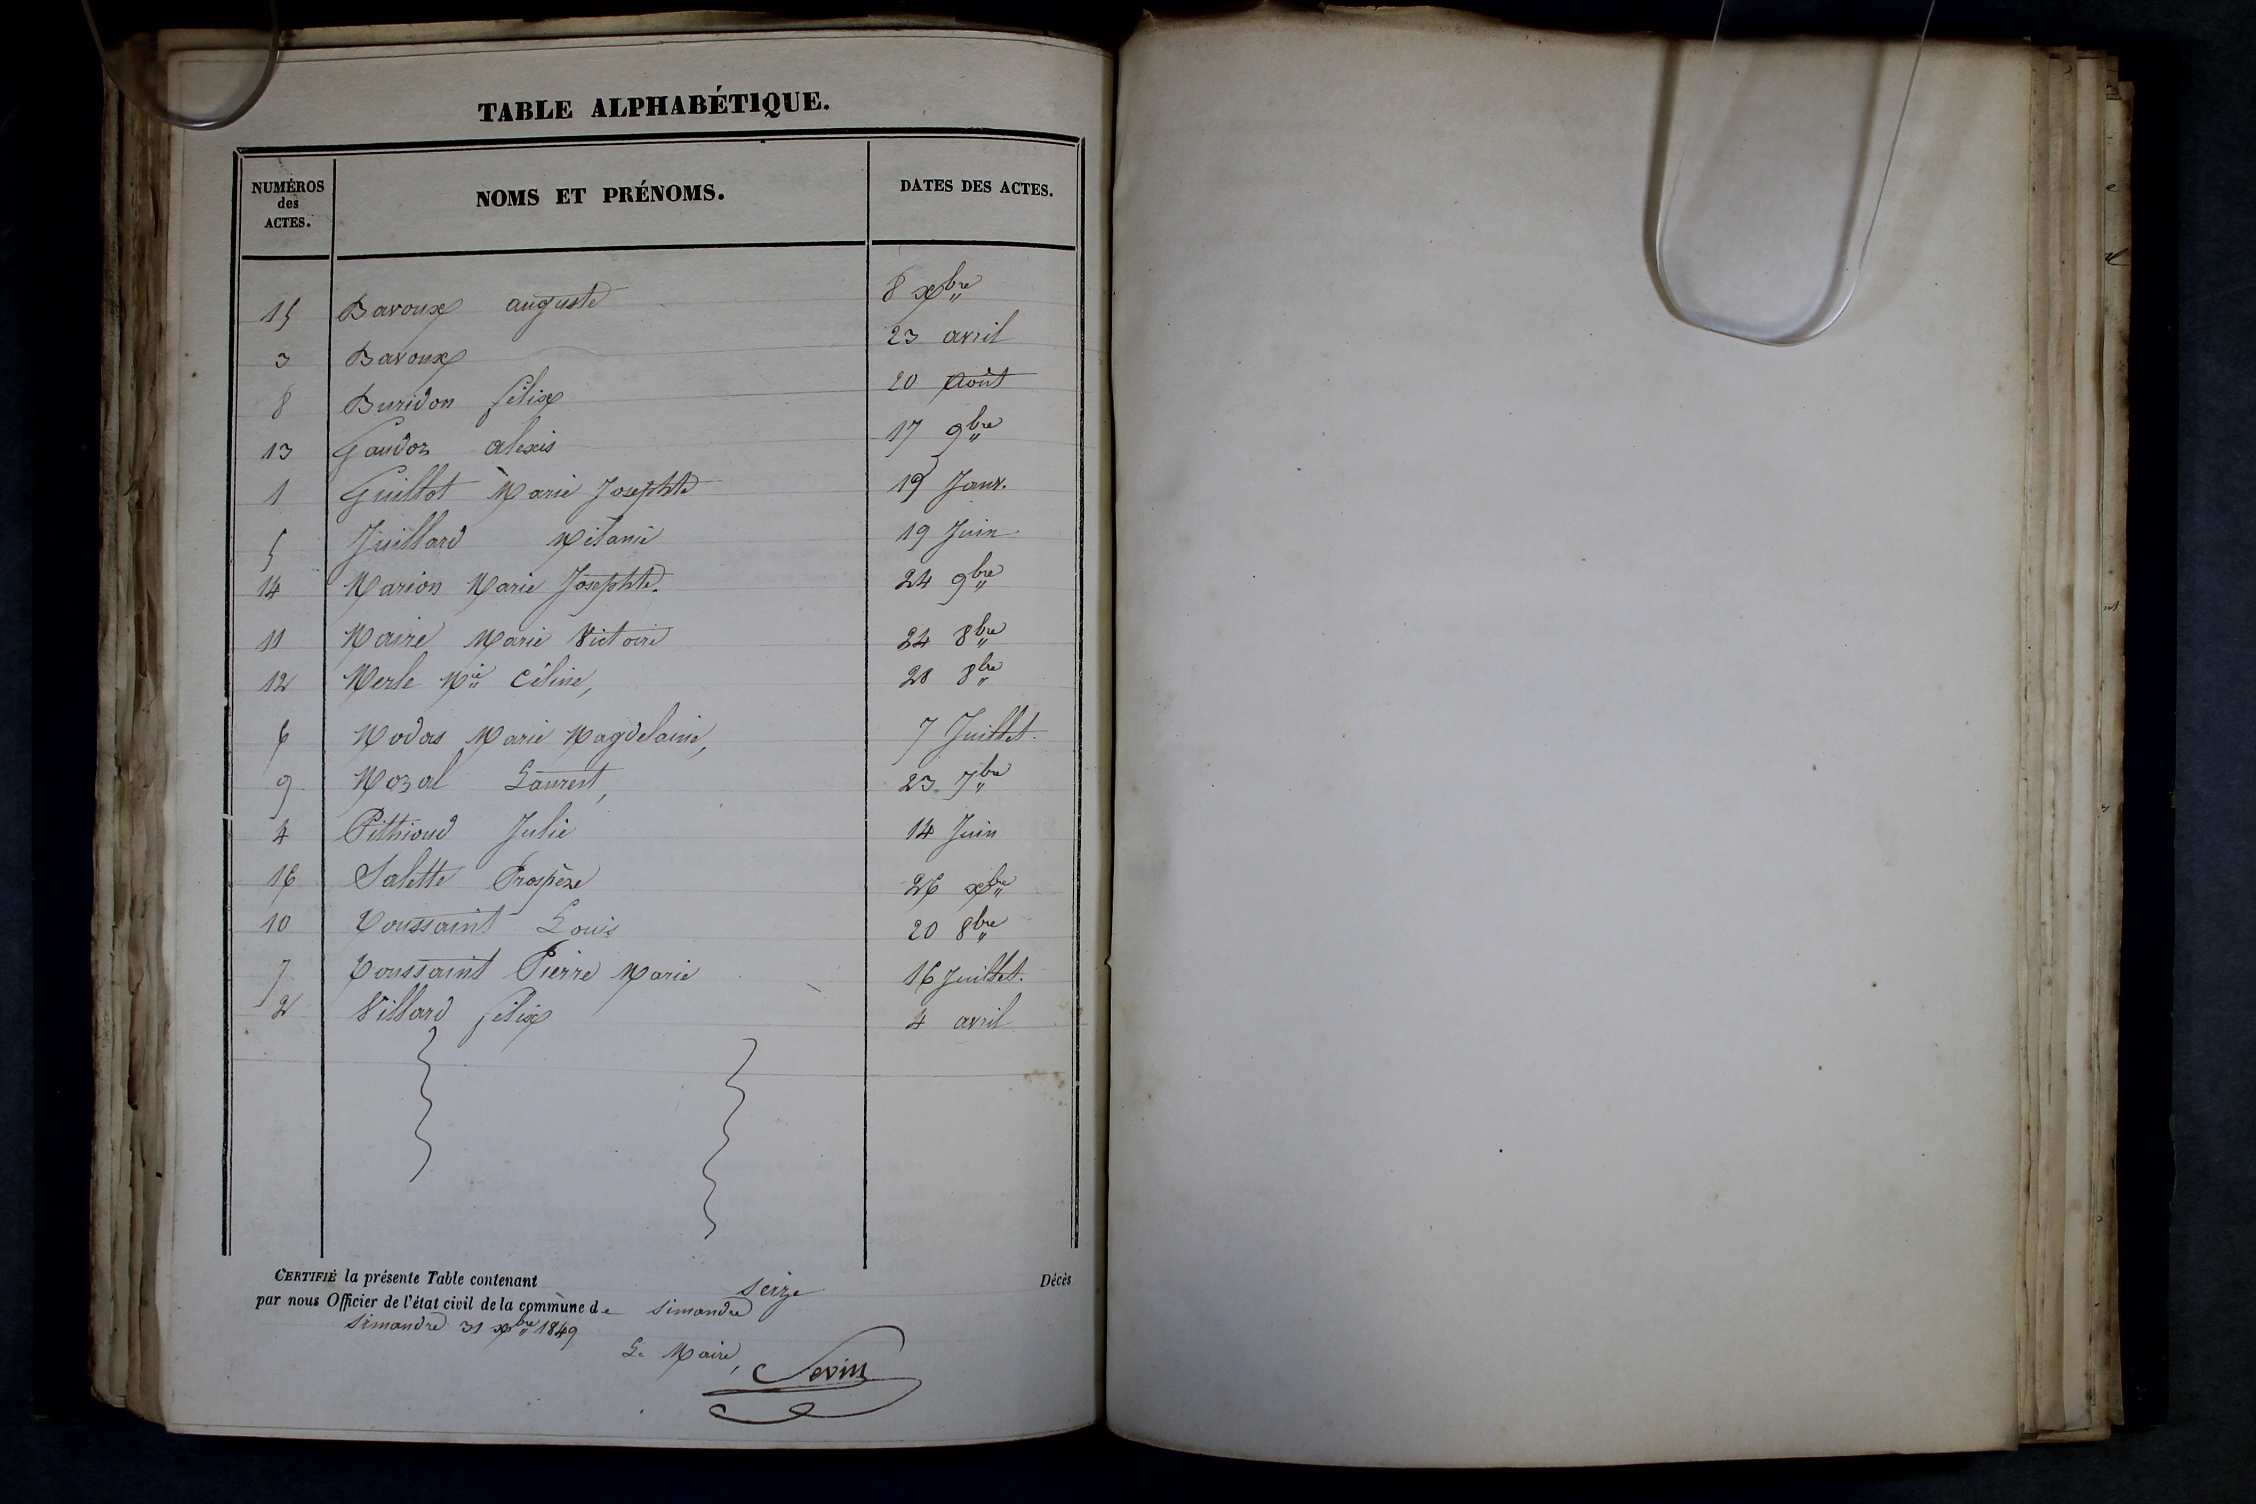 TABLE ALPHABÉTIQUE.
NUMÉROS des ACTES. NOMS ET PRÉNOMS. DATES DES ACTES.
15 Bavoux auguste 8 xbre
3 Bavoux 23 avril
8 Buridon félix 20 Août
13 Gaudoz alexis 17 9bre
1 Guillot Marie Josephte 19 Janv.
5 Juillard Mélanie 19 Juin
14 Marion Marie Josephte. 24 9bre
11 Maire Marie Victoire 24 8bre
12 Merle Mie Céline, 28 8bre
6 Modas Marie Magdelaine, 7 Juillet.
9 Mozal Laurent, 23 7bre
4 Pithioud Julie 14 Juin
16 Salette Prospère 26 xbre
10 Toussaint Louis 20 8bre
7 Toussaint Pierre Marie 16 Juillet.
2 Villard félix 4 avril
CERTIFIÉ la présente Table contenant seize Décès
par nous Officier de l'état civil de la commune de simandre
simandre 31 xbre 1849
Le Maire,
Sevin